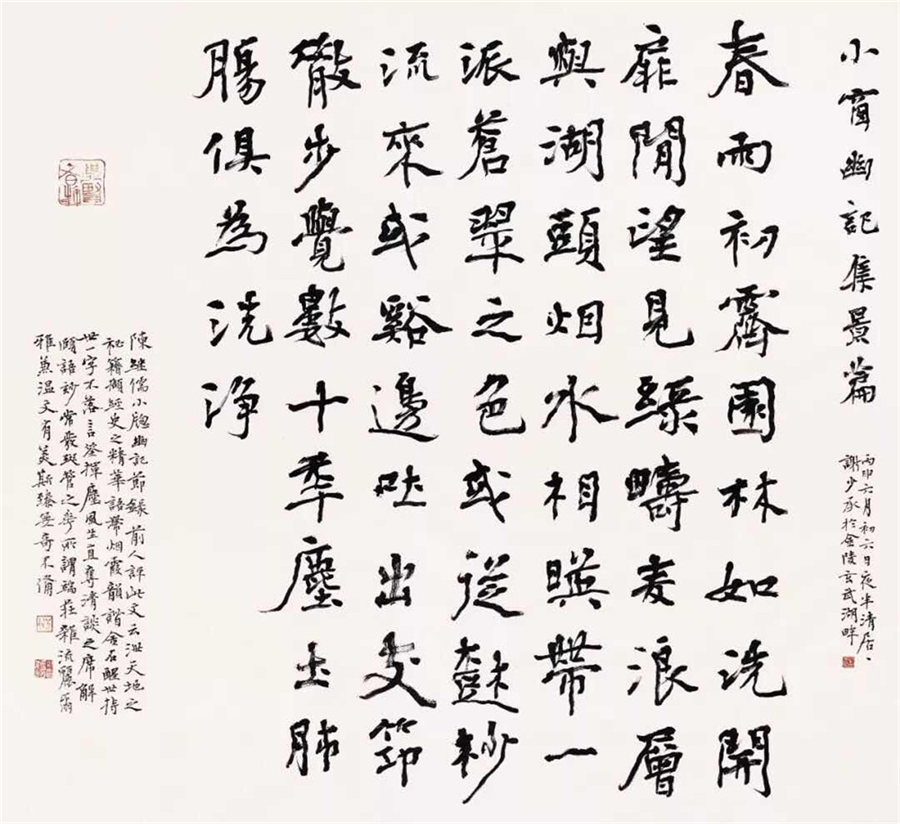 小窗幽記集景篇
丙申六月初六日夜半清居
謝少承於金陵玄武湖畔
春雨初霽園林如洗開
扉閒望見綠疇麦浪層
與湖頭烟水相暎帶一
派蒼翠之色或從樹杪
流來或谿邊吐出支笻
散步覺數十年塵土肺
腸俱為洗淨
陳继儒小窗幽記節錄前人評此文云泄天地之
秘籍擷經史之精華語帶烟霞韻諧金石醒世持
世一字不落言筌揮麈風生直奪清談之席解
頤語妙常發斑管之夢所謂端莊雜流麗爾
雅兼温文有美斯臻無奇不備